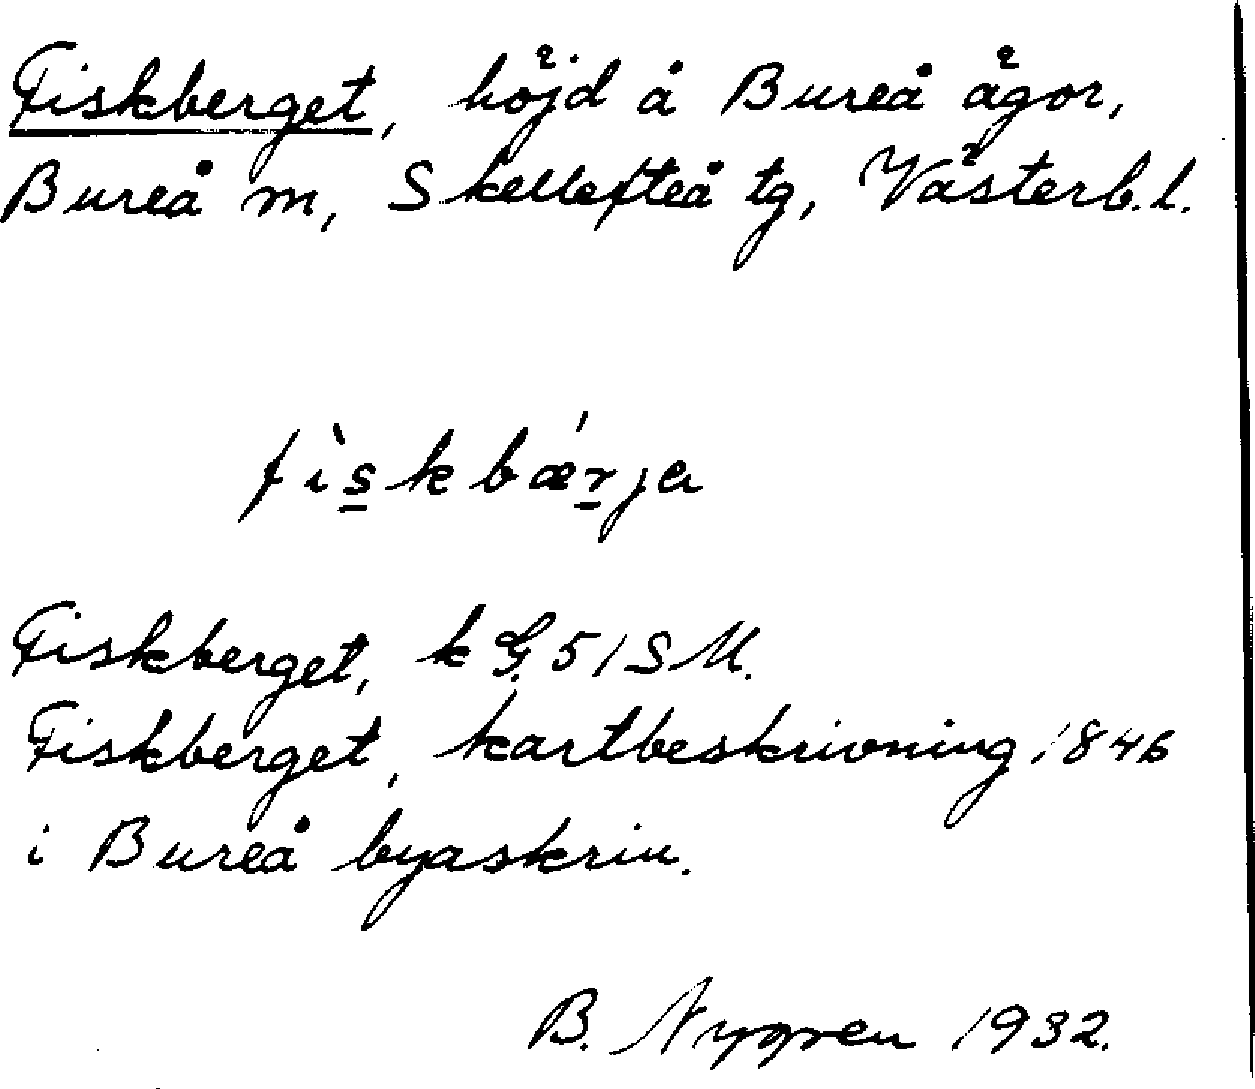 Fiskberget, höjd å Bureå ägor,
Bureå m, Skellefteå tg, Västerb.l.
fìs̲kbǽr̲ja
Fiskberget, k G. 51 S M.
Fiskberget, kartbeskrivning 1846
i Bureå byaskrin.
B. Nygren 1932.